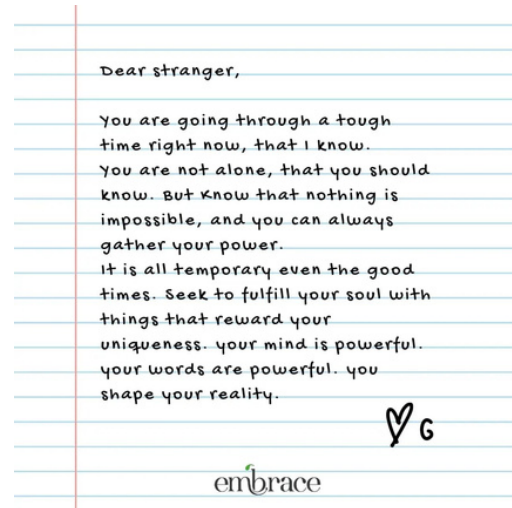 Dear stranger,
You are going through a tough
time right now, that I know.
You are not alone, that you should
know. But know that nothing is
impossible, and you can always
gather your power.
It is all temporary even the good
times. Seek to fulfill your soul with
things that reward your
uniqueness. your mind is powerful.
your words are powerful. you
shape your reality.
G
embrace